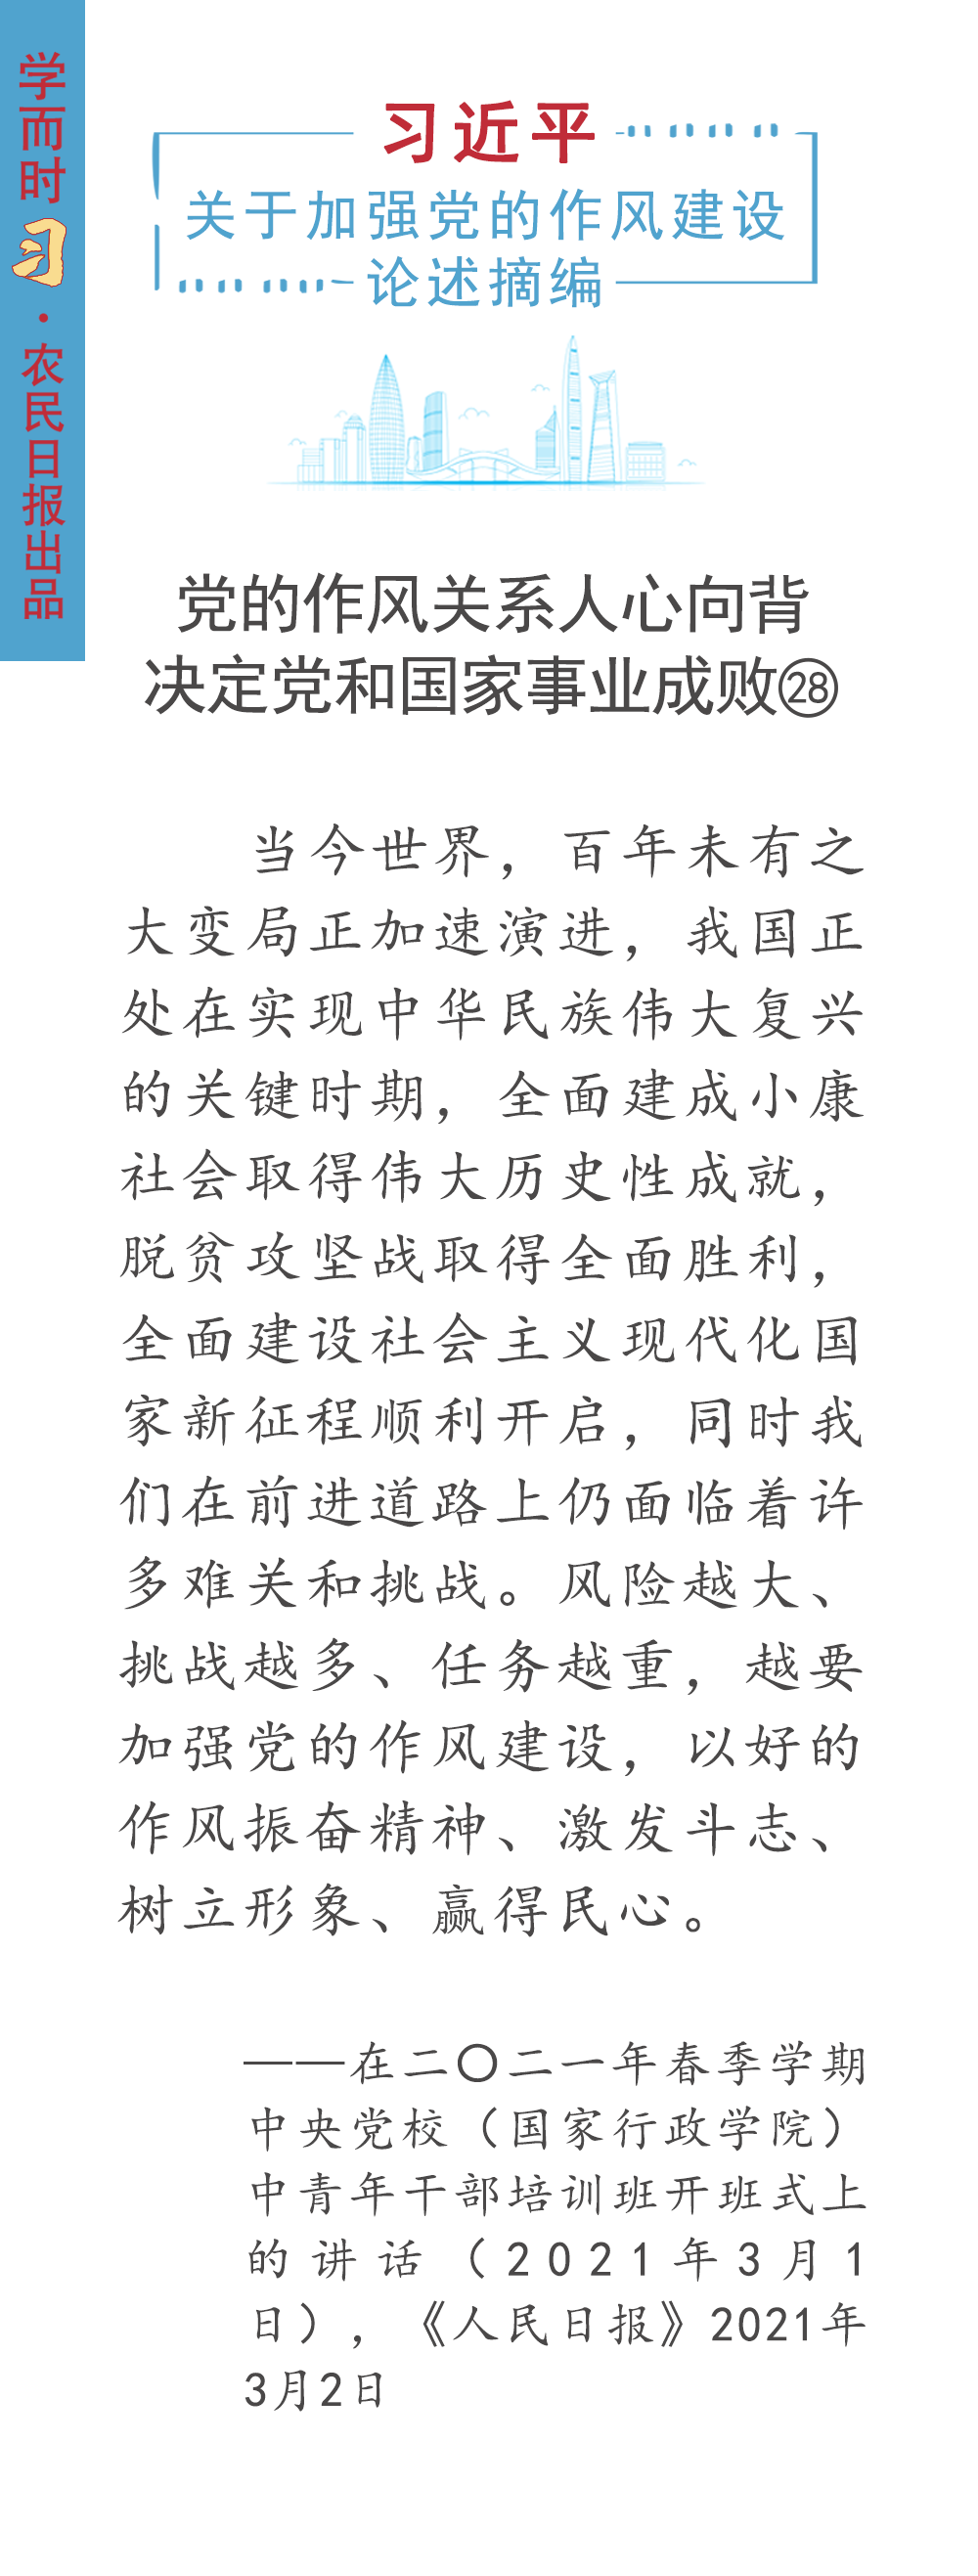 学而时习·农民日报出品
习近平
关于加强党的作风建设
论述摘编
党的作风关系人心向背
决定党和国家事业成败㉘
当今世界，百年未有之
大变局正加速演进，我国正
处在实现中华民族伟大复兴
的关键时期，全面建成小康
社会取得伟大历史性成就，
脱贫攻坚战取得全面胜利，
全面建设社会主义现代化国
家新征程顺利开启，同时我
们在前进道路上仍面临着许
多难关和挑战。风险越大、
挑战越多、任务越重，越要
加强党的作风建设，以好的
作风振奋精神、激发斗志、
树立形象、赢得民心。
——在二〇二一年春季学期
中央党校（国家行政学院）
中青年干部培训班开班式上
的讲话（2021年3月1
日），《人民日报》2021年
3月2日